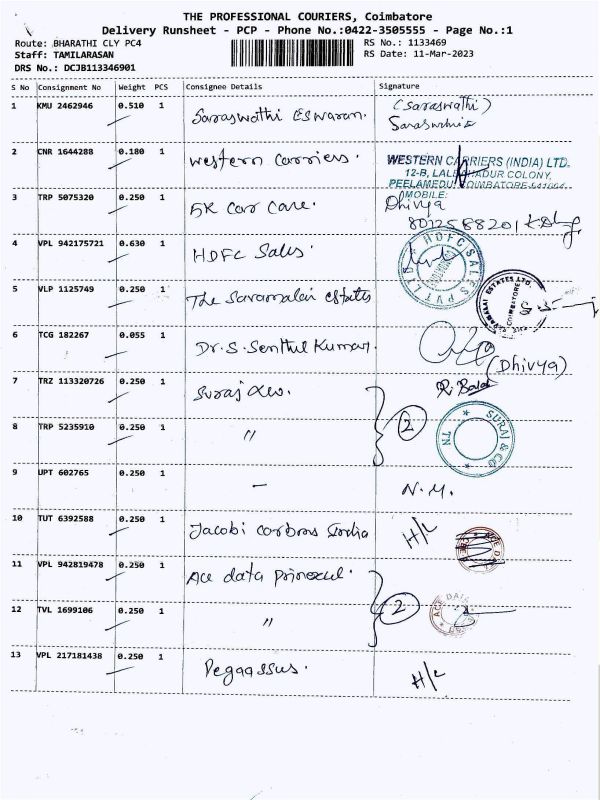 THE PROFESSIONAL COURIERS, Coimbatore
Delivery Runsheet - PCP - Phone No.:0422-3505555 - Page No.:1
Route: BHARATHI CLY PC4 RS No.: 1133469
Staff: TAMILARASAN RS Date: 11-Mar-2023
DRS No.: DCJB113346901
S No Consignment No Weight PCS Consignee Details Signature
1 KMU 2462946 0.510 1 Saraswathi Eswaran. (Saraswathi)
2 CNR 1644288 0.180 1 western carriers. WESTERN CARRIERS (INDIA) LTD.
12-B, LAL BAHADUR COLONY,
PEELAMEDU, COIMBATORE-641004
MOBILE:
3 TRP 5075320 0.250 1 5K Car Care. Dhivya
8012588201
4 VPL 942175721 0.630 1 HDFC Sales. HDFC SALES PVT LTD
5 VLP 1125749 0.250 1 The Saramalai estates
6 TCG 182267 0.055 1 Dr. S. Senthil Kumar. (Dhivya)
7 TRZ 113320726 0.250 1 Suraj R. Balaji
8 TRP 5235910 0.250 1 〃 2 SURAJ & CO TN
9 UPT 602765 0.250 1 — N.M.
10 TUT 6392588 0.250 1 Jacobi carbons India H/L
11 VPL 942819478 0.250 1 Ace data
12 TVL 1699106 0.250 1 〃 2 ACE DATA
13 VPL 217181438 0.250 1 Pegaassus. H/L